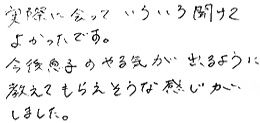 実際に会っていろいろ聞けて
よかったです。
今後息子のやる気が出るように
教えてもらえそうな感じが
しました。